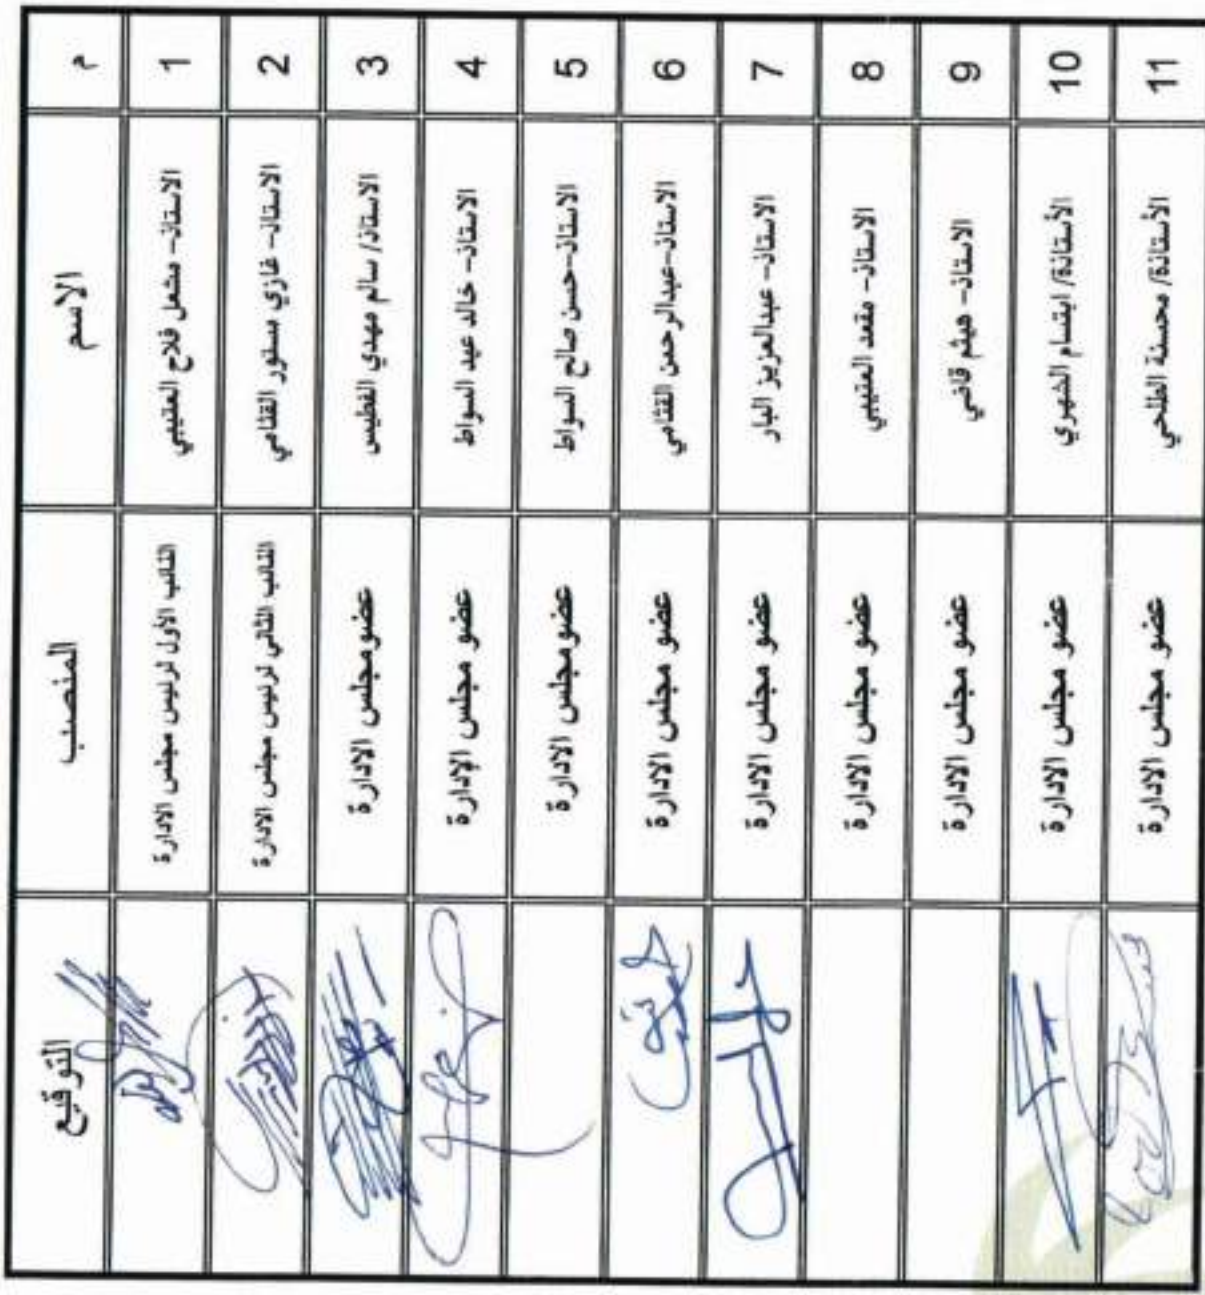 م الاسم المنصب التوقيع
1 الاستاذ- مشعل فلاح العتيبي النائب الأول لرئيس مجلس الادارة
2 الاستاذ- غازي مستور القثامي النائب الثاني لرئيس مجلس الادارة
3 الاستاذ/ سالم مهدي الفطيس عضومجلس الادارة
4 الاستاذ- خالد عيد السواط عضو مجلس الإدارة
5 الاستاذ-حسن صالح السواط عضومجلس الادارة
6 الاستاذ-عبدالرحمن القثامي عضو مجلس الادارة
7 الاستاذ- عبدالعزيز البار عضو مجلس الادارة
8 الاستاذ- مقعد العتيبي عضو مجلس الادارة
9 الاستاذ- هيثم قاضي عضو مجلس الادارة
10 الأستاذة/ ابتسام الشهري عضو مجلس الادارة
11 الأستاذة/ محسنة الطلحي عضو مجلس الادارة